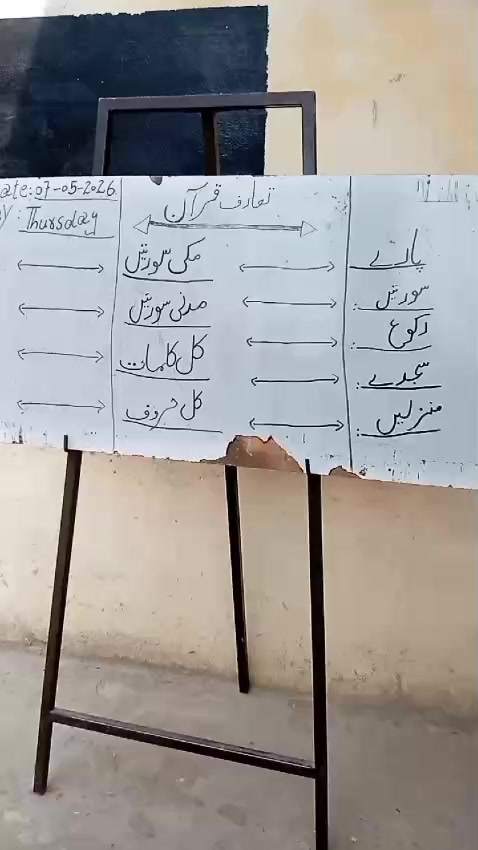 ate: 07-05-2026
y: Thursday
تعارف قرآن
پارے
سورتیں:
رکوع:
سجدے:
منزلیں:
مکی سورتیں
مدنی سورتیں
کل کلمات
کل حروف